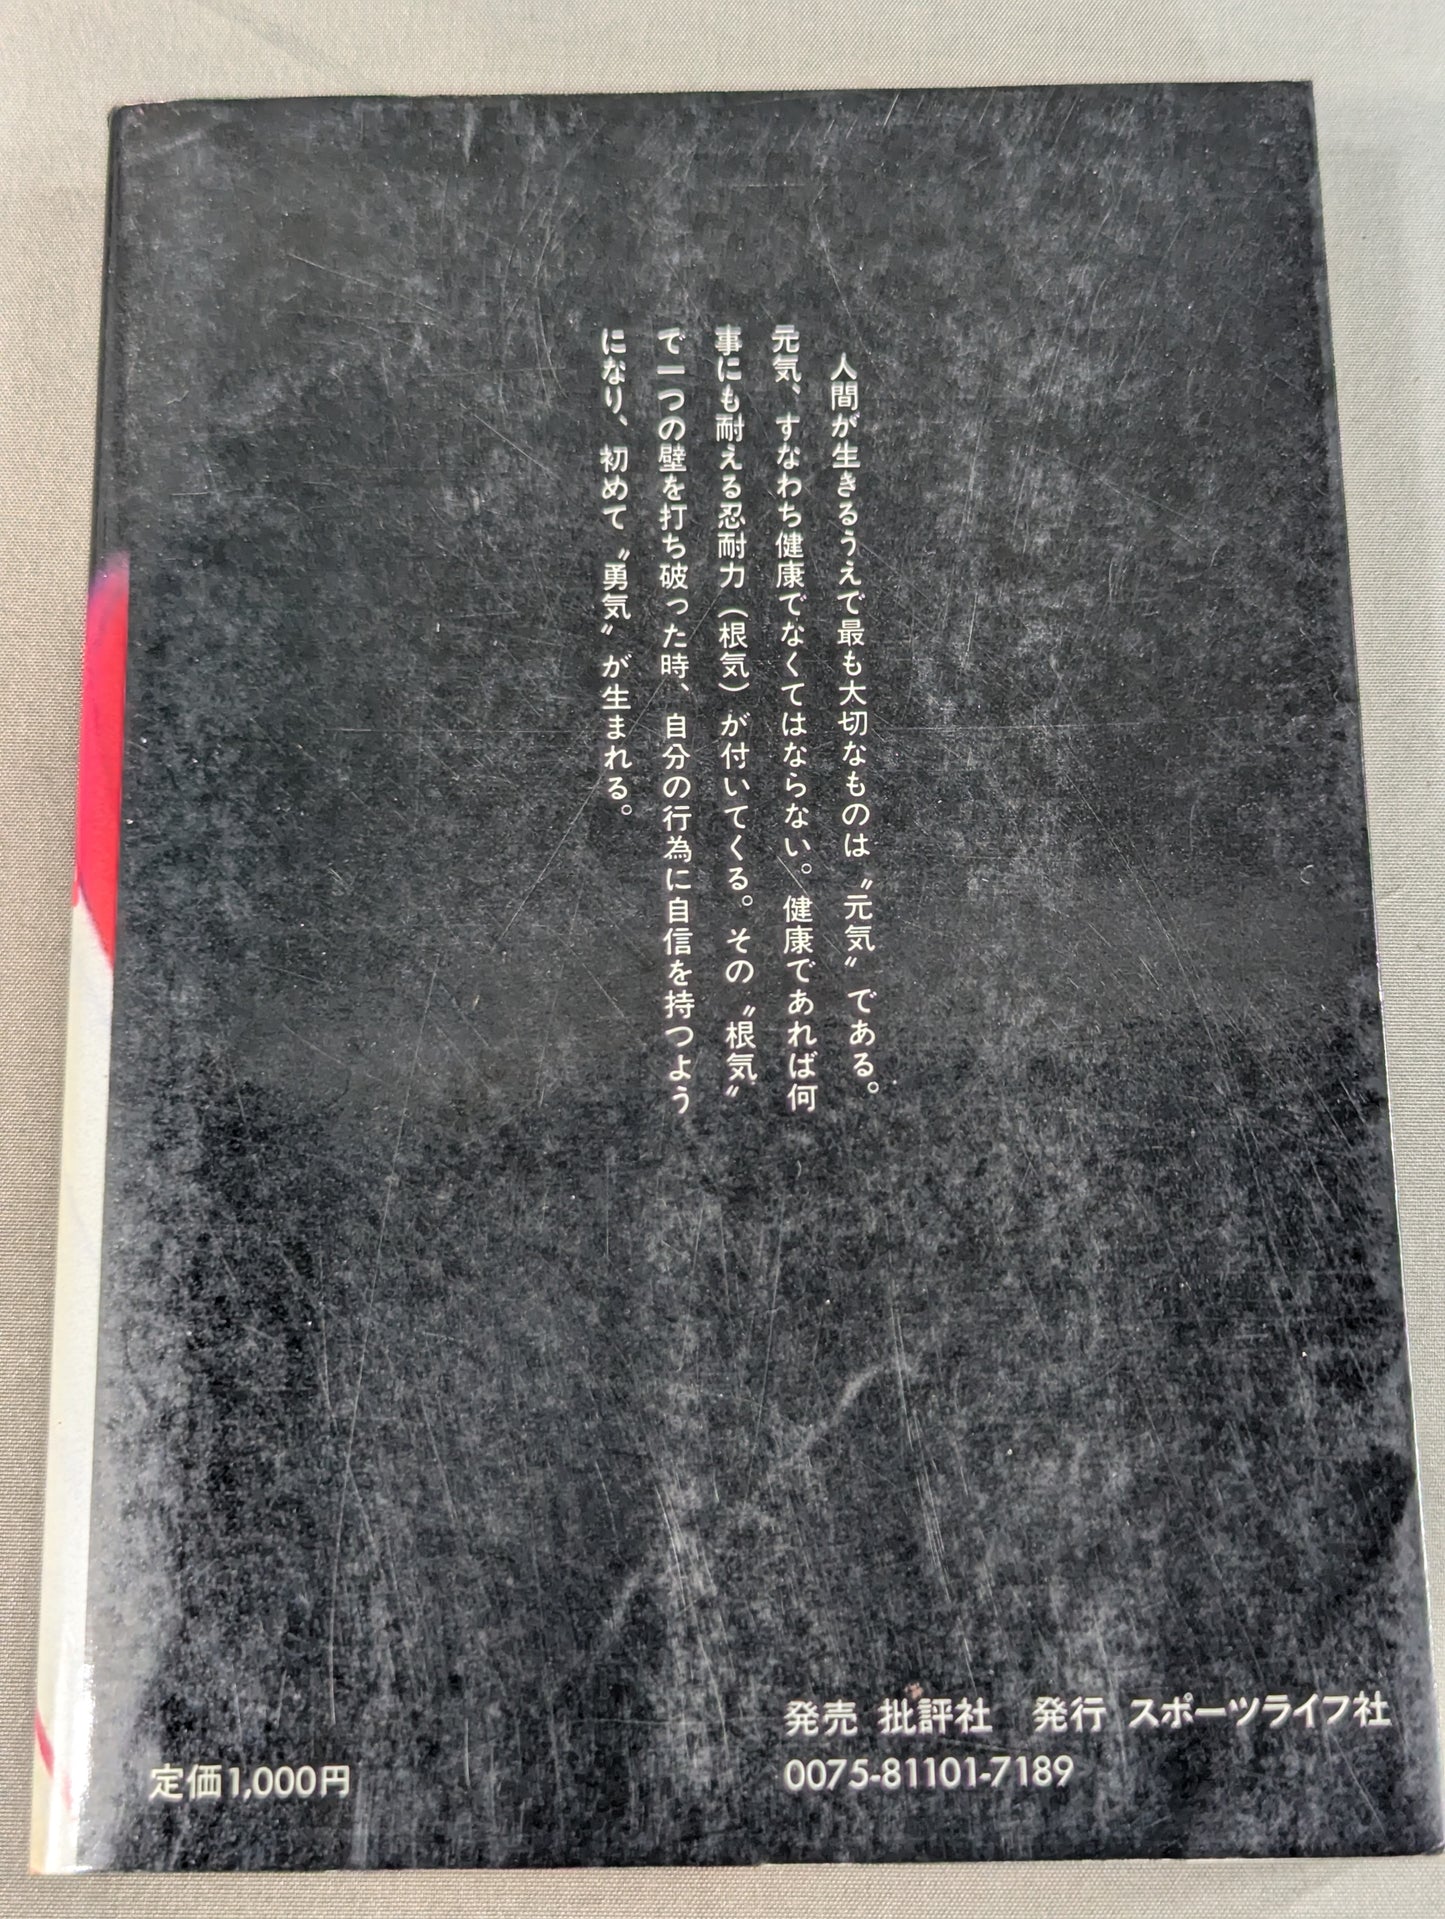 人間が生きるうえで最も大切なものは〝元気〟である。
元気、すなわち健康でなくてはならない。健康であれば何
事にも耐える忍耐力（根気）が付いてくる。その〝根気〟
で一つの壁を打ち破った時、自分の行為に自信を持つよう
になり、初めて〝勇気〟が生まれる。
発売 批評社　発行 スポーツライフ社
0075-81101-7189
定価1,000円